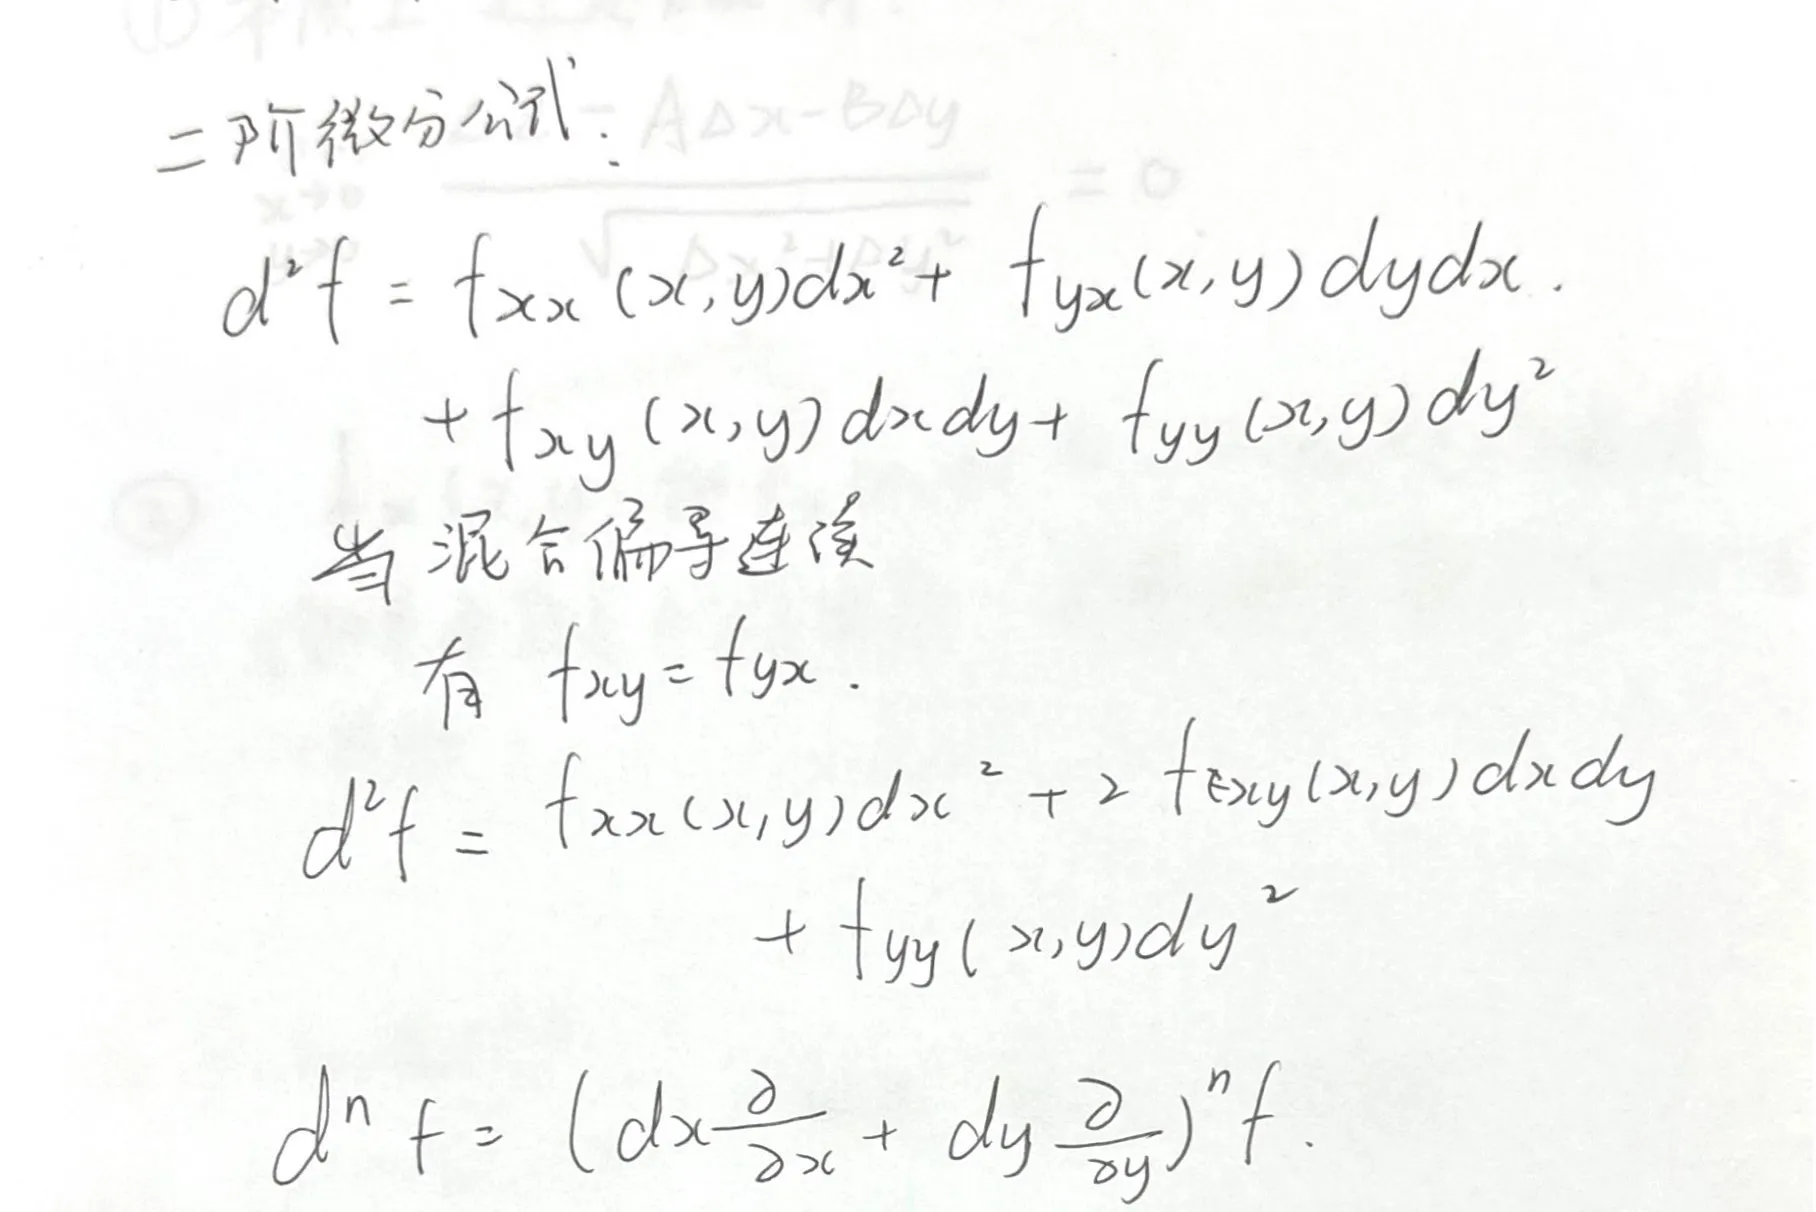 二阶微分公式:
d²f = fxx (x,y)dx² + fyx(x,y) dydx.
+ fxy (x,y) dxdy + fyy (x,y) dy²
当混合偏导连续
有 fxy = fyx .
d²f = fxx(x,y)dx² + 2 fxy(x,y)dxdy
+ fyy(x,y)dy²
dⁿf = (dx ∂/∂x + dy ∂/∂y)ⁿ f.